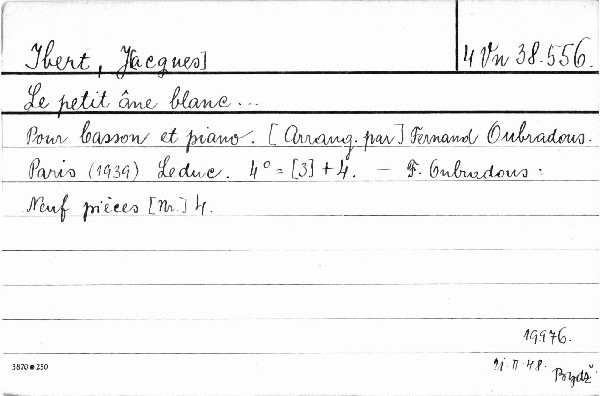 Ibert, J[acques]
4 Vn 38.556.
Le petit âne blanc...
Pour basson et piano. [Arrang. par] Fernand Oubradous.
Paris (1939) Leduc. 4° = [3] + 4. — F. Oubradous:
Neuf pièces [Nr.] 4.
19976.
3870 • 250
21·II·48.